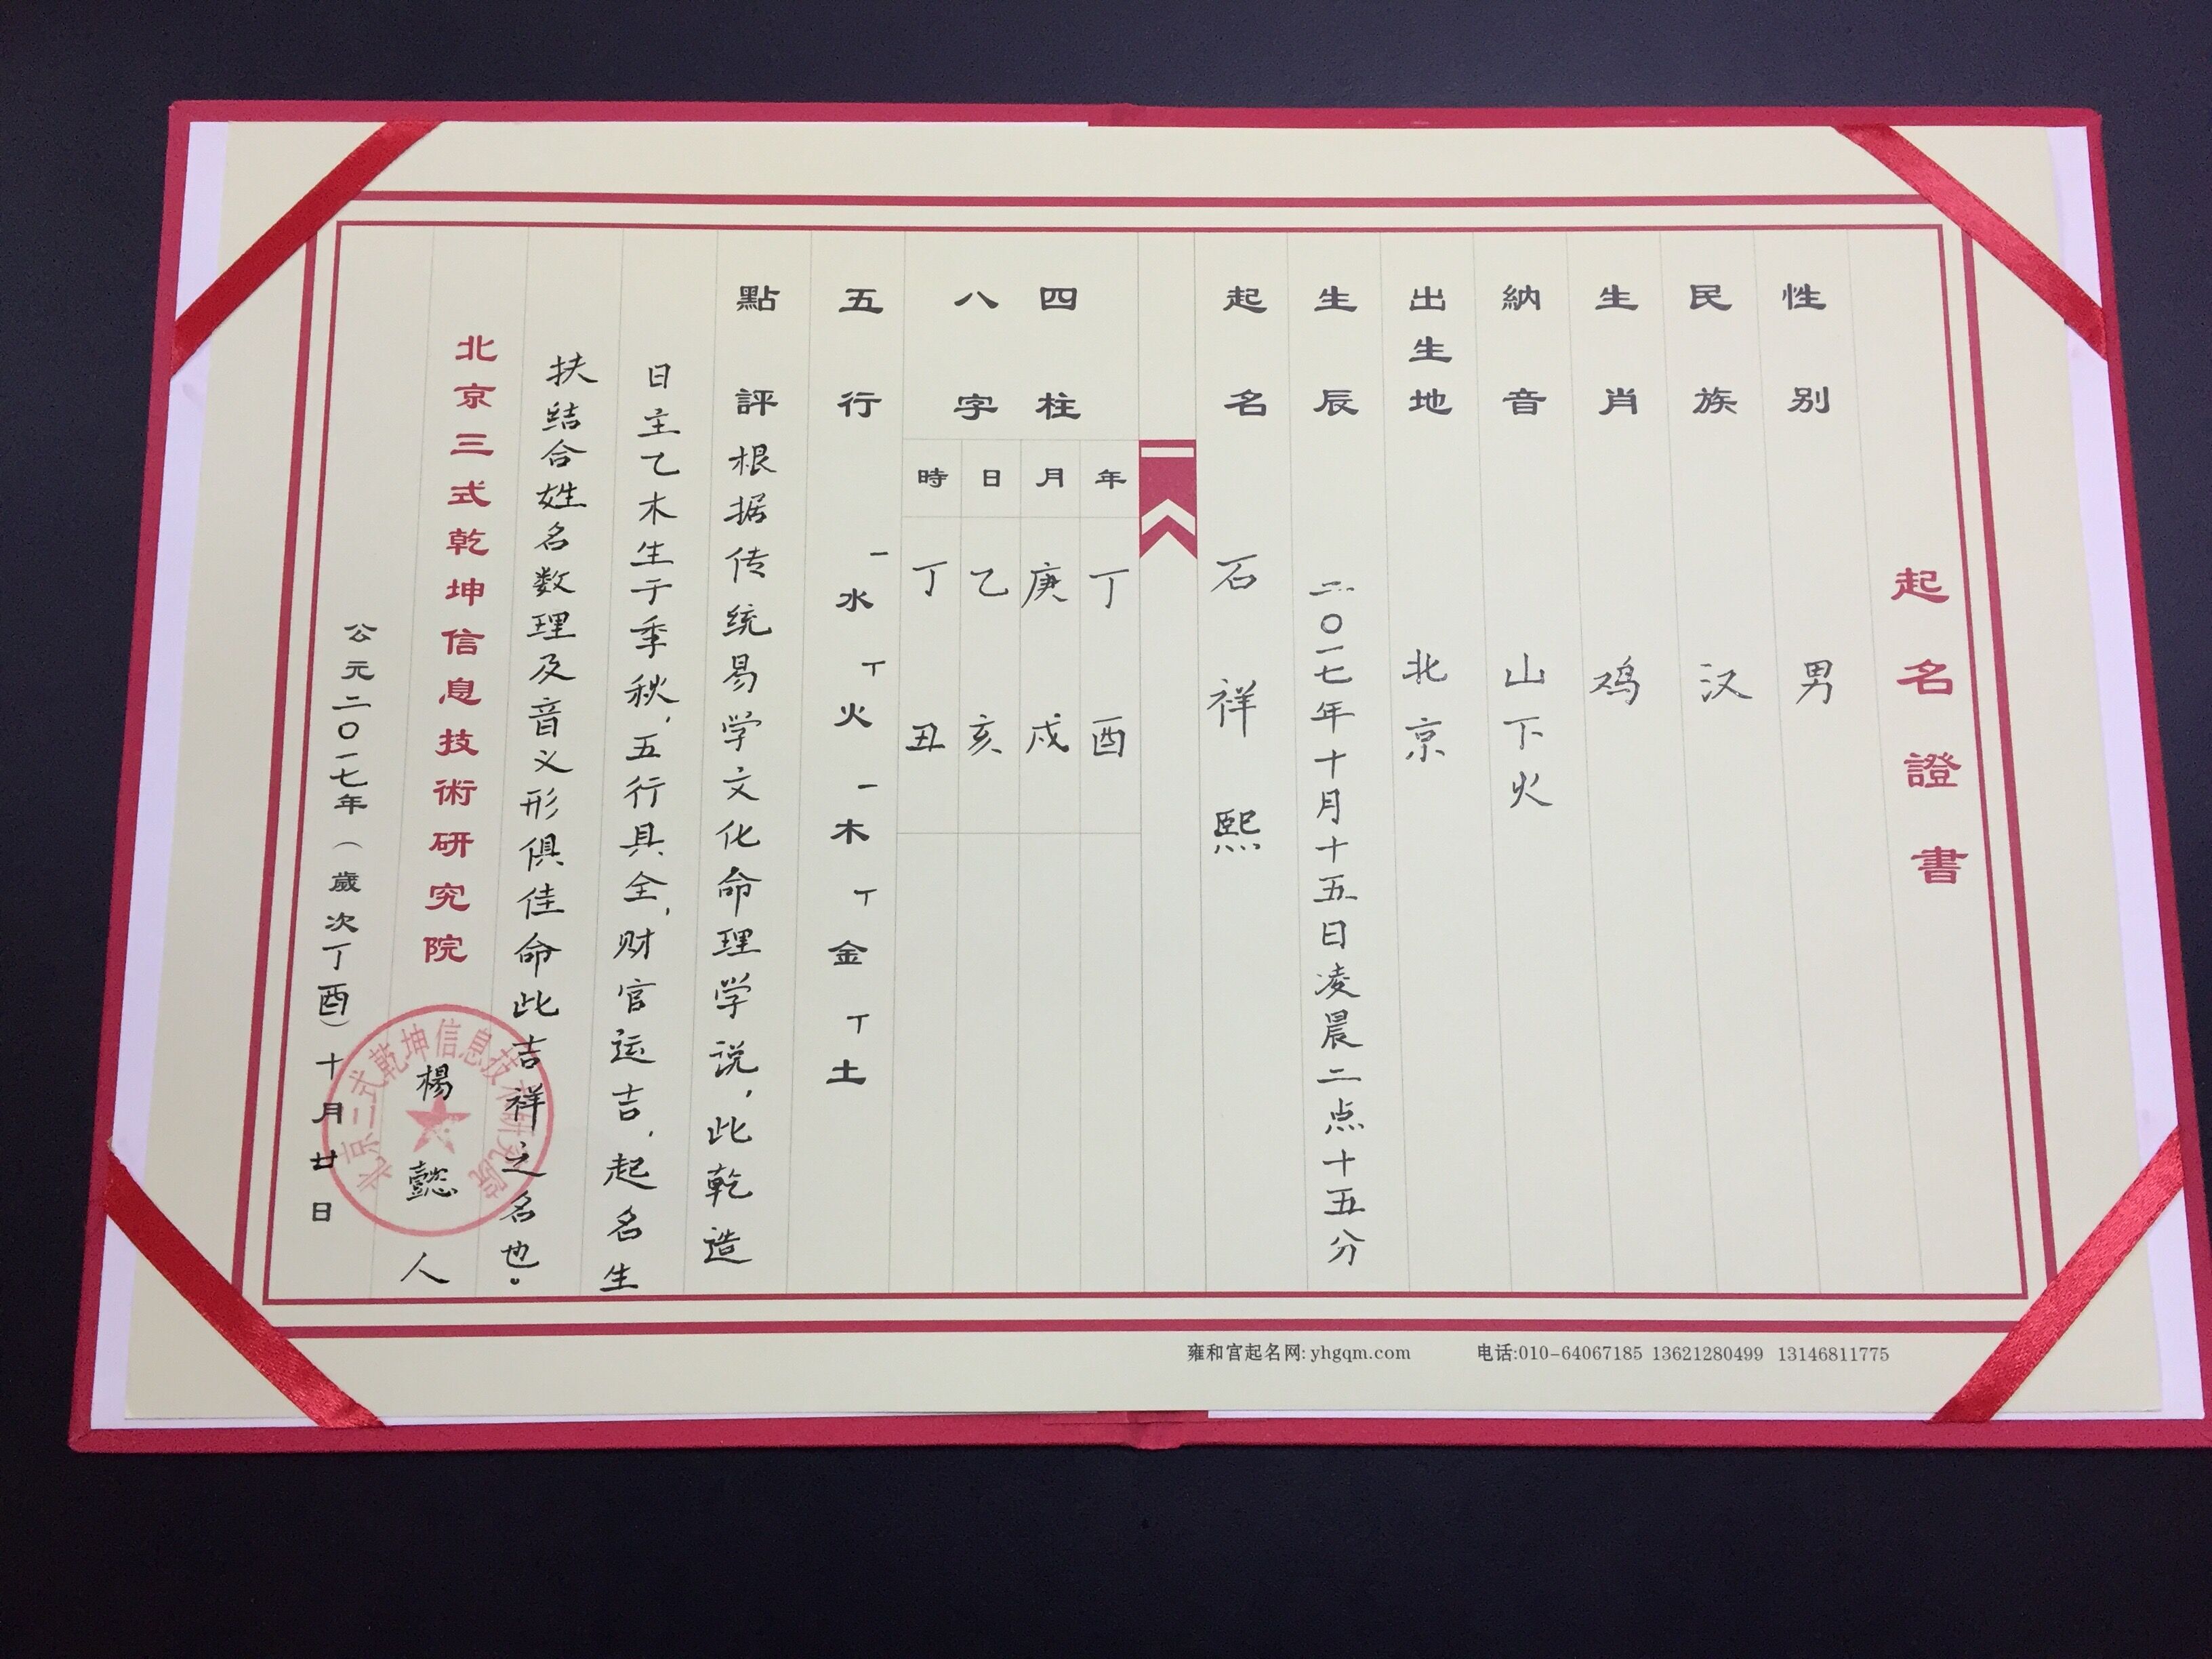 起名證書
性别 男
民族 汉
生肖 鸡
納音 山下火
出生地 北京
生辰 二〇一七年十月十五日凌晨二点十五分
起名 石祥熙
四柱
八字
年 丁酉
月 庚戌
日 乙亥
時 丁丑
五行 一水 丅火 一木 丅金 丅土
點評 根据传统易学文化命理学说，此乾造
日主乙木生于季秋，五行具全，财官运吉，起名生
扶结合姓名数理及音义形俱佳命此吉祥之名也。
北京三式乾坤信息技術研究院
楊懿人
北京三式乾坤信息技术研究院
公元二〇一七年（歲次丁酉）十月廿日
雍和宫起名网: yhgqm.com 电话:010-64067185 13621280499 13146811775